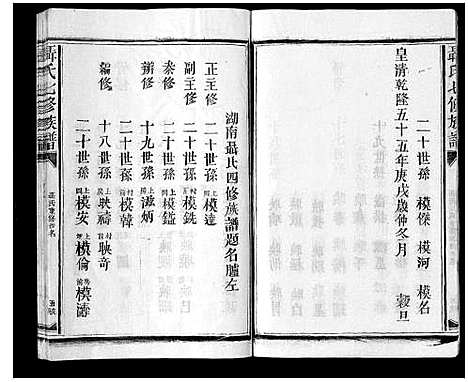 聶氏七修族譜
二十世孫 模傑 模河 模名
皇清乾隆五十五年庚戌歲仲冬月 穀旦
湖南聶氏四修族譜題名臚左
正主修 二十世孫 模達
副主修 二十世孫 模銑
秦修 二十世孫 模鎰
辦修 十九世孫 滋炳
二十世孫 模韓
編修 十八世孫 映禱 映奇
二十世孫 模安 模倫 模濤
聶氏七修族譜